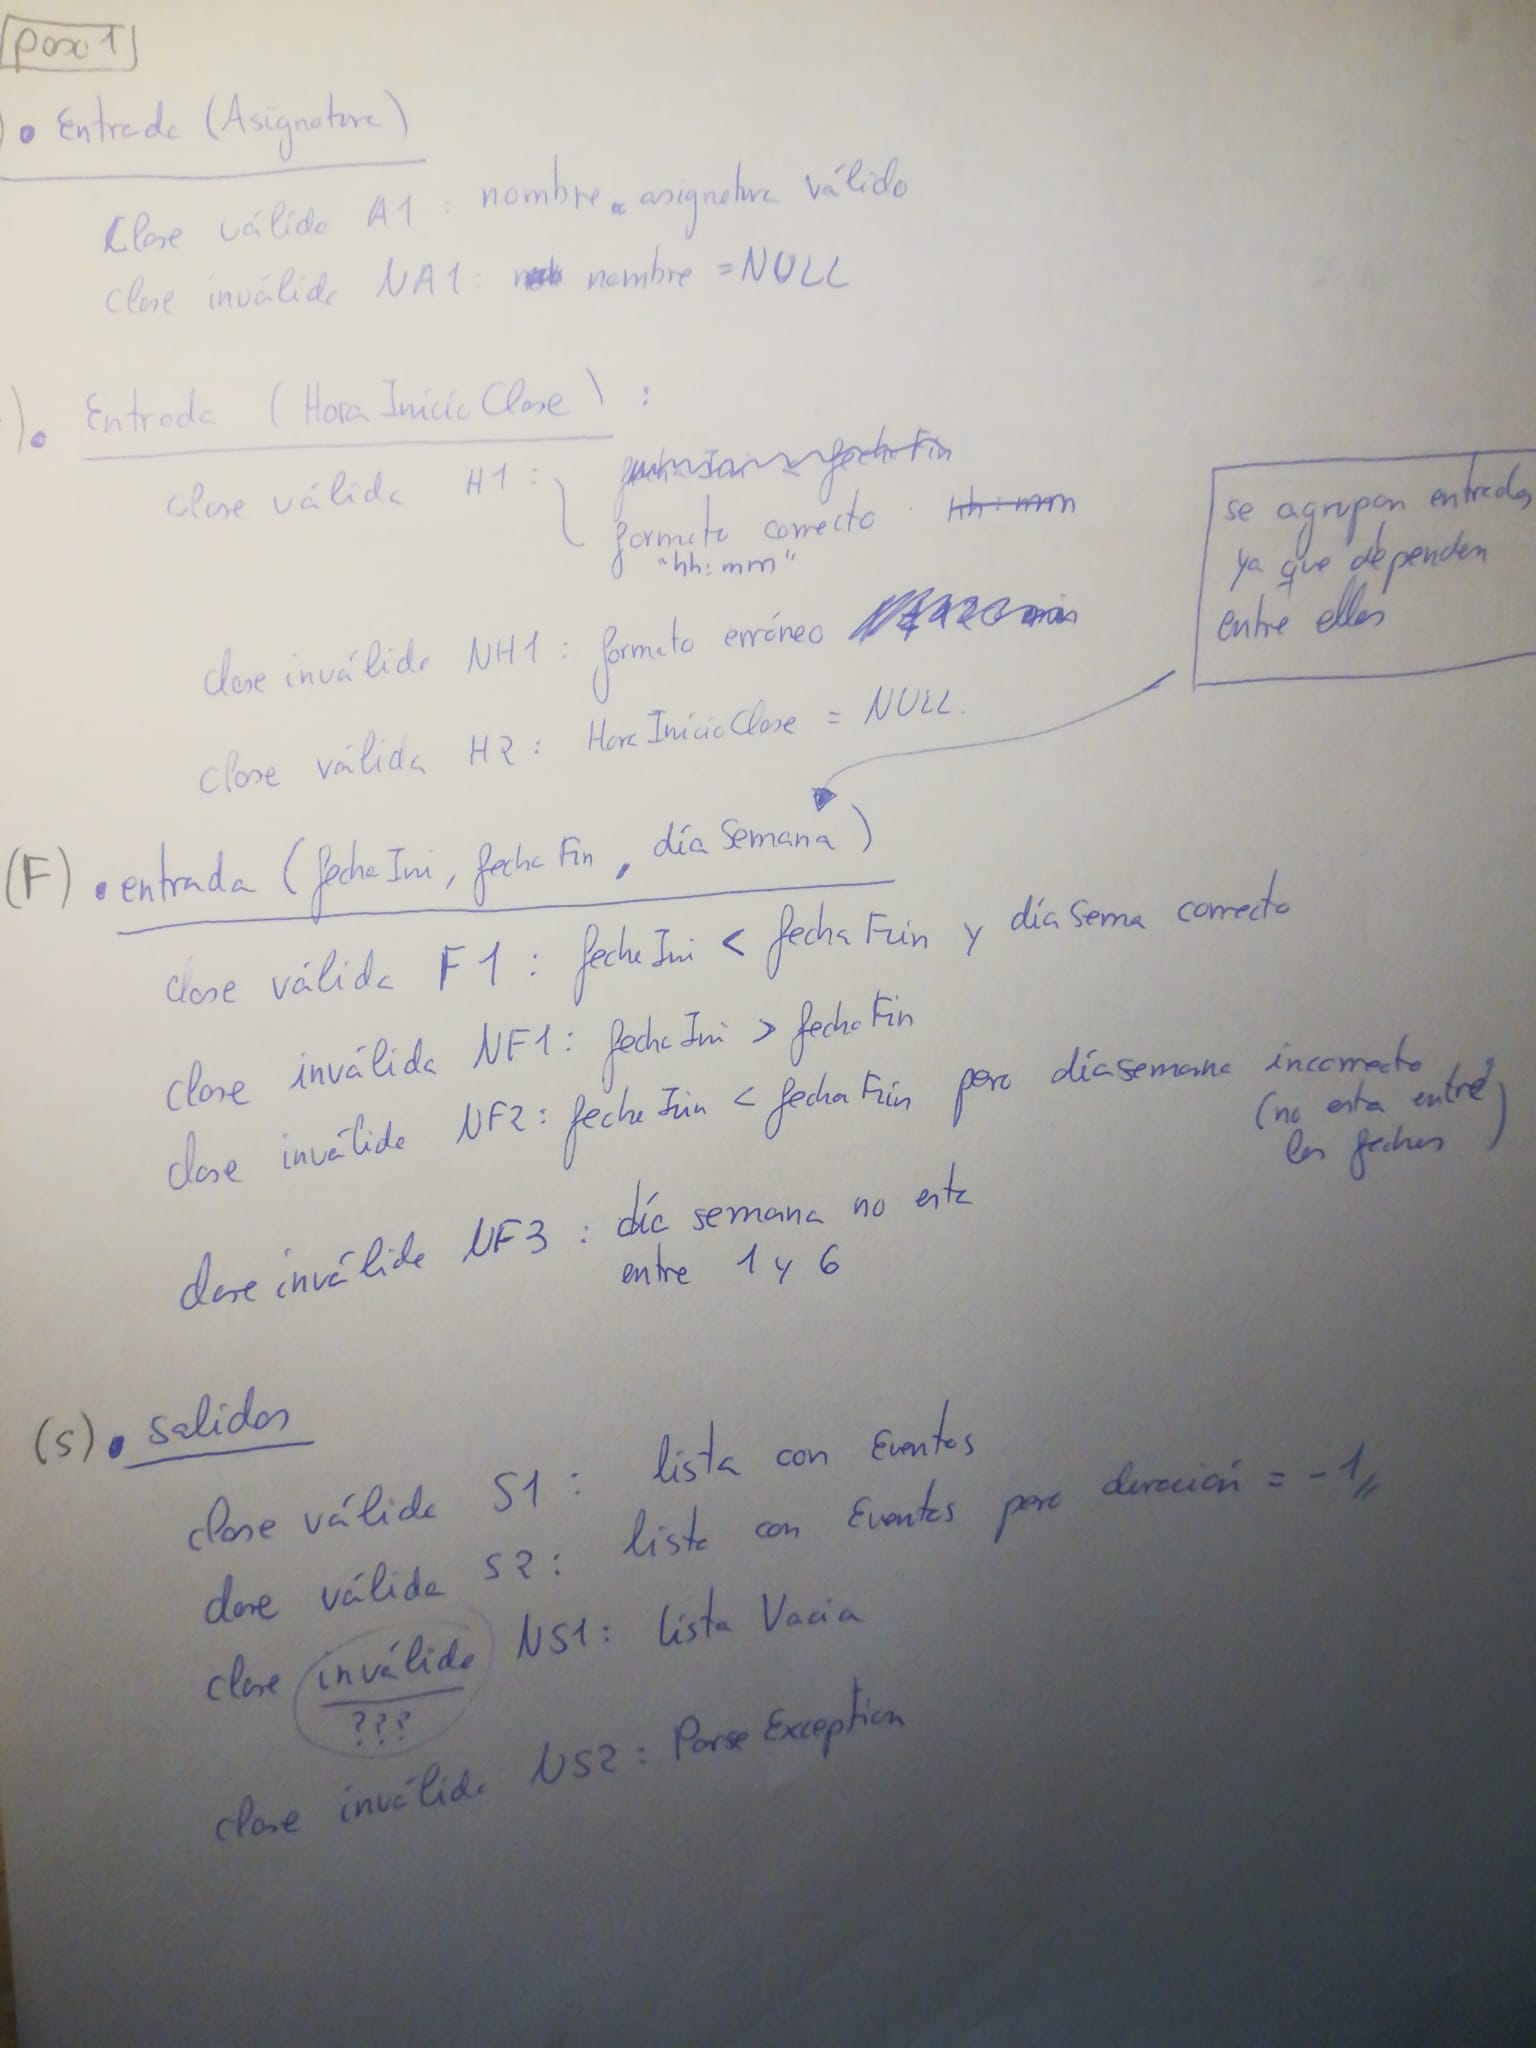 paso 1
) • Entrada (Asignatura)
Clase válida A1 : nombre asignatura válido
Clase inválida NA1 : nombre = NULL
). • Entrada ( Hora Inicio Clase ) :
clase válida H1 : fechaIni < fechaFin
formato correcto hh:mm
"hh:mm"
clase inválida NH1 : formato erróneo
clase válida H2 : Hora Inicio Clase = NULL.
se agrupan entradas
ya que dependen
entre ellas
(F) • entrada (fecha Ini, fecha Fin, día Semana)
clase válida F1 : fecha Ini < fecha Fin y día Sema correcto
clase inválida NF1 : fecha Ini > fecha Fin
clase inválida NF2 : fecha Ini < fecha Fin pero díasemana incorrecto
(no esta entre
las fechas)
clase inválida NF3 : día semana no esta
entre 1 y 6
(S) • salidas
clase válida S1 : lista con Eventos
clase válida S2 : lista con Eventos pero duración = -1
clase inválida NS1 : lista Vacia
???
clase inválida NS2 : Parse Exception